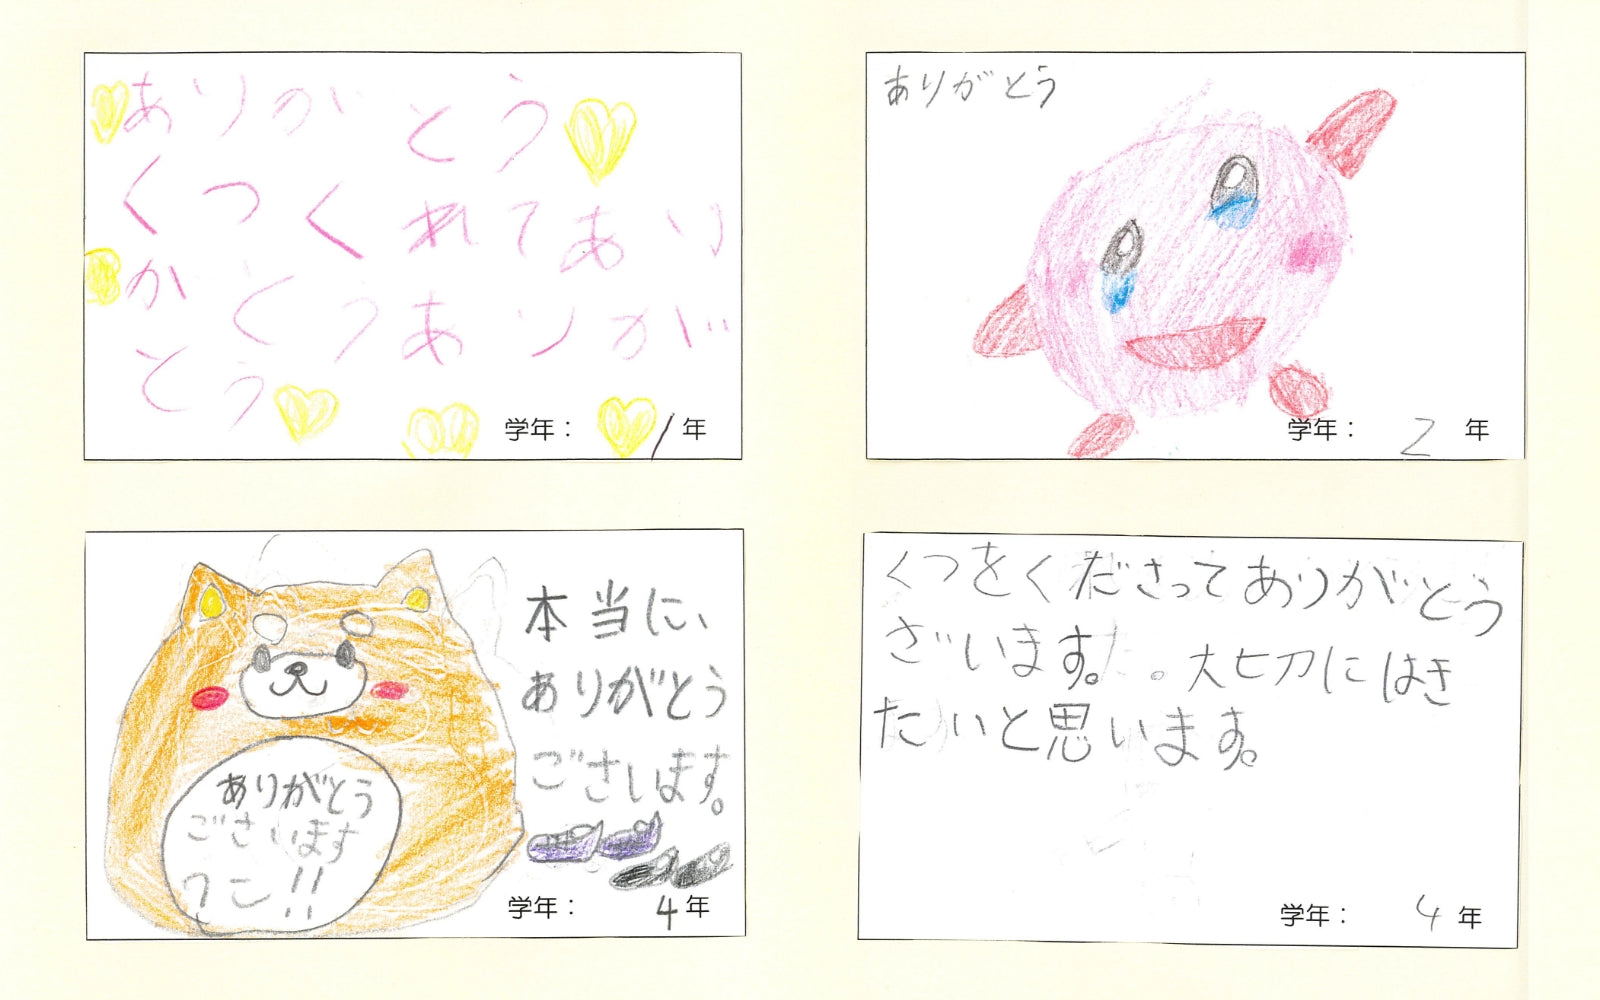 ありがとう
くつくれてあり
かとうありが
とう
学年： 1年
ありがとう
学年： 2年
本当に、
ありがとう
ございます。
ありがとう
ございます
ワン!!
学年： 4年
くつをくださってありがとう
ざいます。大切にはき
たいと思います。
学年： 4年